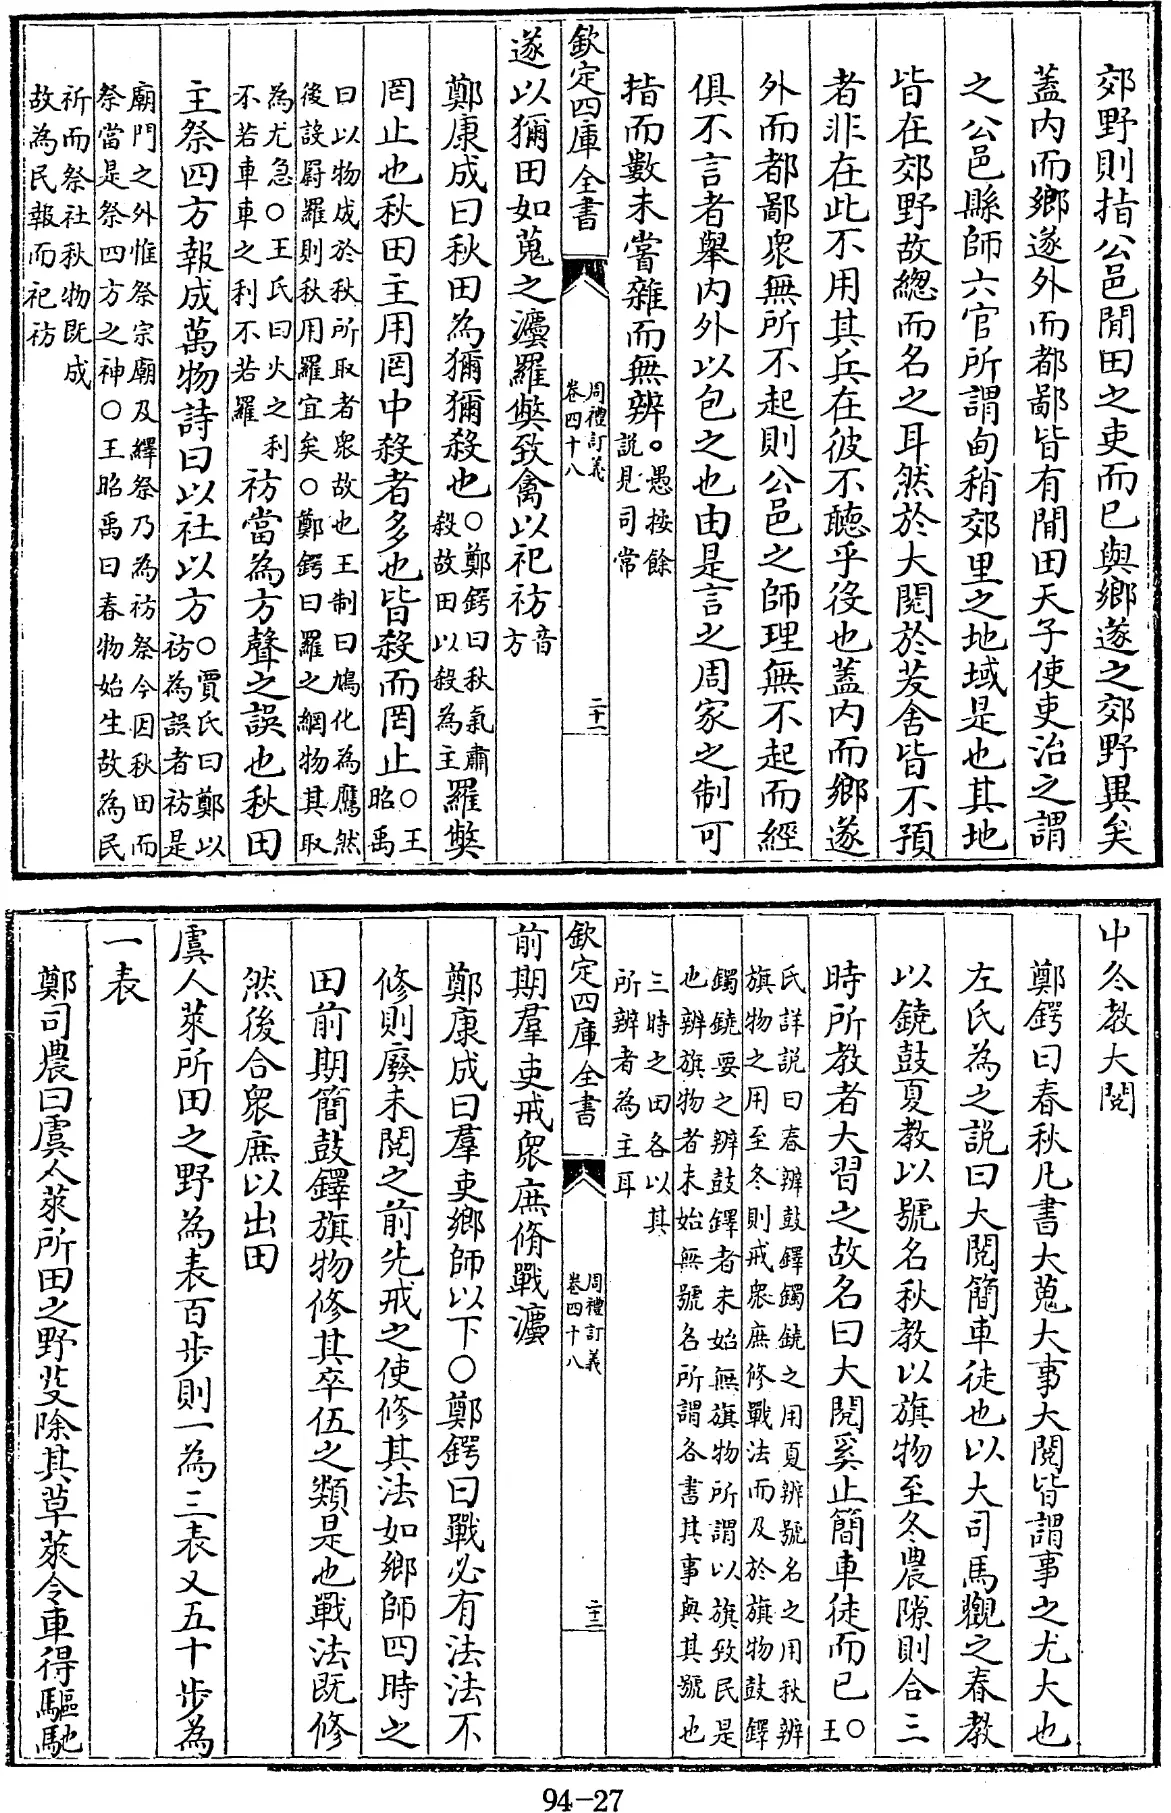 郊野則指公邑閒田之吏而已與鄉遂之郊野異矣
蓋内而鄉遂外而都鄙皆有閒田天子使吏治之謂
之公邑縣師六官所謂甸稍郊里之地域是也其地
皆在郊野故總而名之耳然於大閱於茇舍皆不預
者非在此不用其兵在彼不聽乎役也蓋内而鄉遂
外而都鄙衆無所不起則公邑之師理無不起而經
俱不言者舉内外以包之也由是言之周家之制可
指而數未嘗雜而無辨。愚按餘
説見司常
欽定四庫全書
周禮訂義
卷四十八
二十一
遂以獮田如蒐之灋羅弊致禽以祀祊音
方
鄭康成曰秋田為獮獮殺也○鄭鍔曰秋氣肅
殺故田以殺為主羅弊
罔止也秋田主用罔中殺者多也皆殺而罔止○王
昭禹
曰以物成於秋所取者衆故也王制曰鳩化為鷹然
後設罻羅則秋用羅宜矣○鄭鍔曰羅之網物其取
為尤急○王氏曰火之利
不若車車之利不若羅祊當為方聲之誤也秋田
主祭四方報成萬物詩曰以社以方○賈氏曰鄭以
祊為誤者祊是
廟門之外惟祭宗廟及繹祭乃為祊祭今因秋田而
祭當是祭四方之神○王昭禹曰春物始生故為民
祈而祭社秋物既成
故為民報而祀祊
中冬教大閱
鄭鍔曰春秋凡書大蒐大事大閱皆謂事之尤大也
左氏為之説曰大閱簡車徒也以大司馬觀之春教
以鐃鼓夏教以號名秋教以旗物至冬農隙則合三
時所教者大習之故名曰大閱奚止簡車徒而已○
王
氏詳説曰春辨鼓鐸鐲鐃之用夏辨號名之用秋辨
旗物之用至冬則戒衆庶修戰法而及於旗物鼓鐸
鐲鐃要之辨鼓鐸者未始無旗物所謂以旗致民是
也辨旗物者未始無號名所謂各書其事與其號也
三時之田各以其
所辨者為主耳
欽定四庫全書
周禮訂義
卷四十八
二十二
前期羣吏戒衆庶脩戰灋
鄭康成曰羣吏鄉師以下○鄭鍔曰戰必有法法不
修則廢未閱之前先戒之使修其法如鄉師四時之
田前期簡鼓鐸旗物修其卒伍之類是也戰法既修
然後合衆庶以出田
虞人萊所田之野為表百步則一為三表又五十步為
一表
鄭司農曰虞人萊所田之野芟除其草萊令車得驅馳
94-27